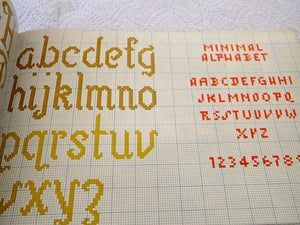 abcdefg
hijklmno
pqrstuv
wxyz
MINIMAL
ALPHABET
ABCDEFGHI
JKLMNOPQ
RSTUVW
XYZ
123456789